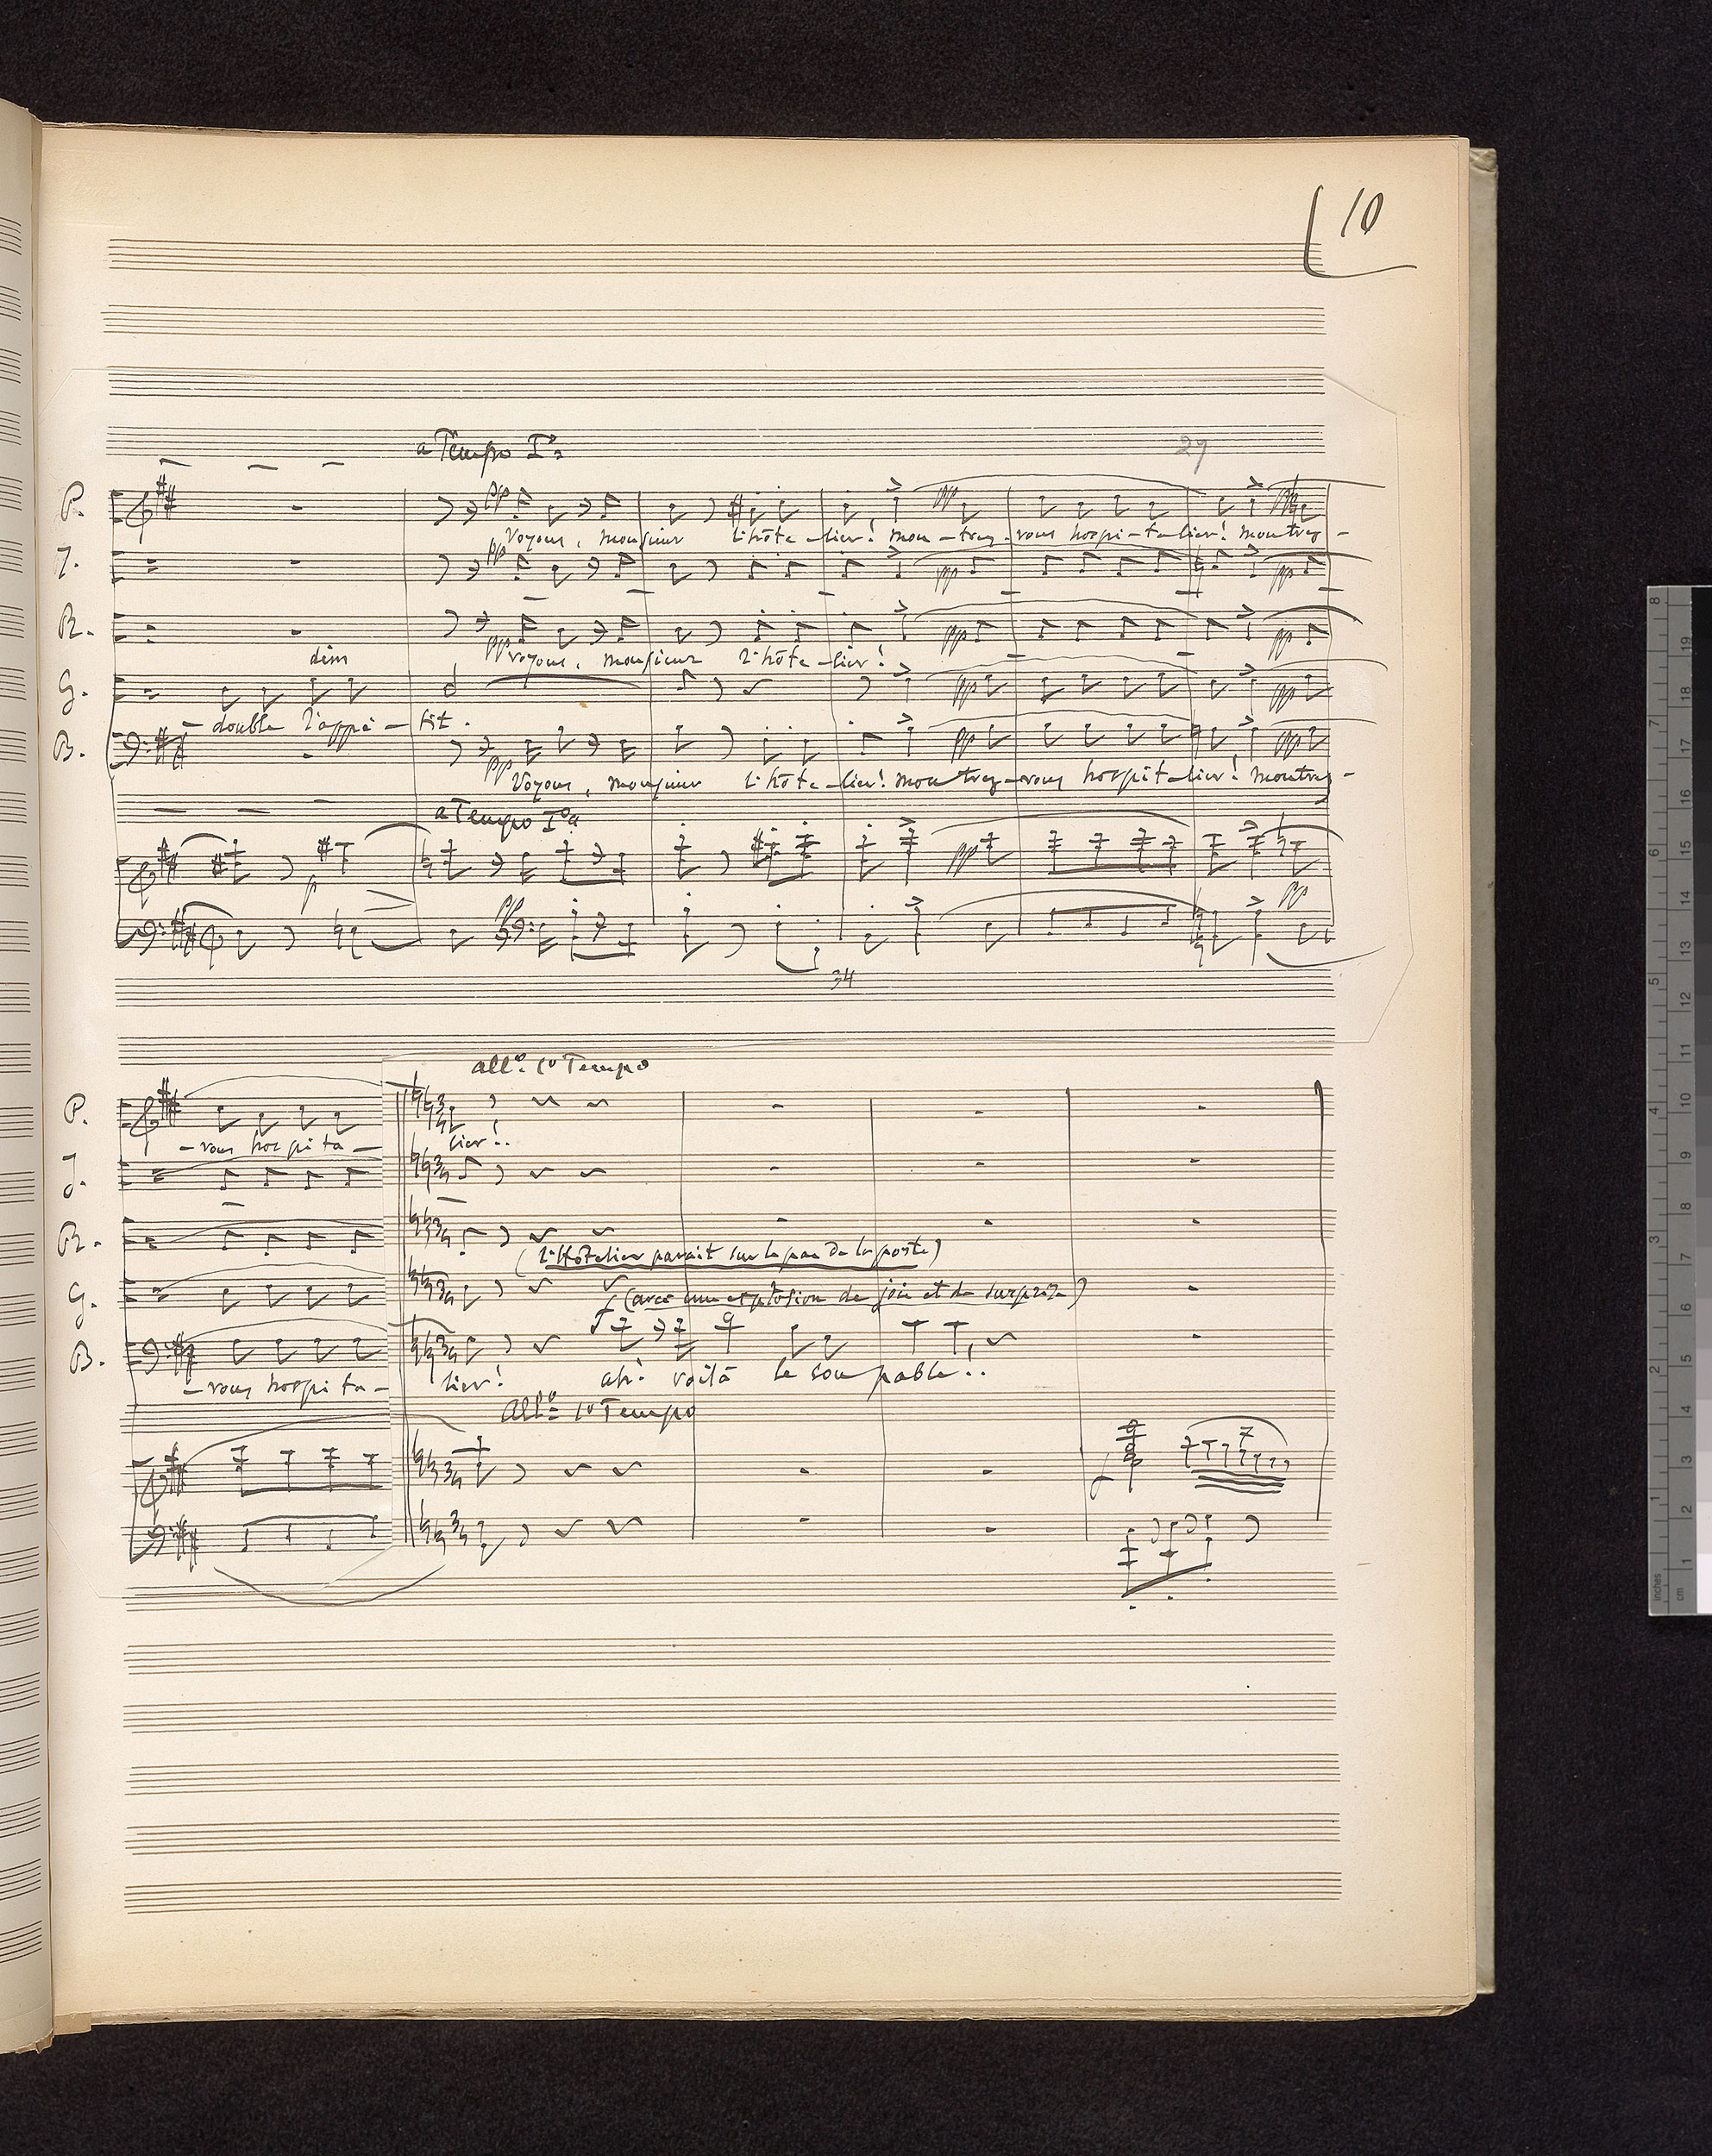 10
a Tempo Iº
27
P.
Voyons, monsieur l'hôte-lier! mon-trez-vous hospi-ta-lier! montrez-
J.
R.
voyons, monsieur l'hôte-lier!
dim
G.
-double l'appé-tit.
B.
Voyons, monsieur l'hôte-lier! mon trez-vous hospit-lier! montrez-
a Tempo Iº
34
all.º 1º Tempo
P.
-vous hospita-lier!..
J.
R.
(l'Hôtelier parait sur le pas de la porte)
G.
(avec une explosion de joie et de surprise)
B.
-vous hospita-lier! ah! voilà le cou pable!..
All.º 1º Tempo
inches
1 2 3 4 5 6 7 8
cm
1 2 3 4 5 6 7 8 9 10 11 12 13 14 15 16 17 18 19